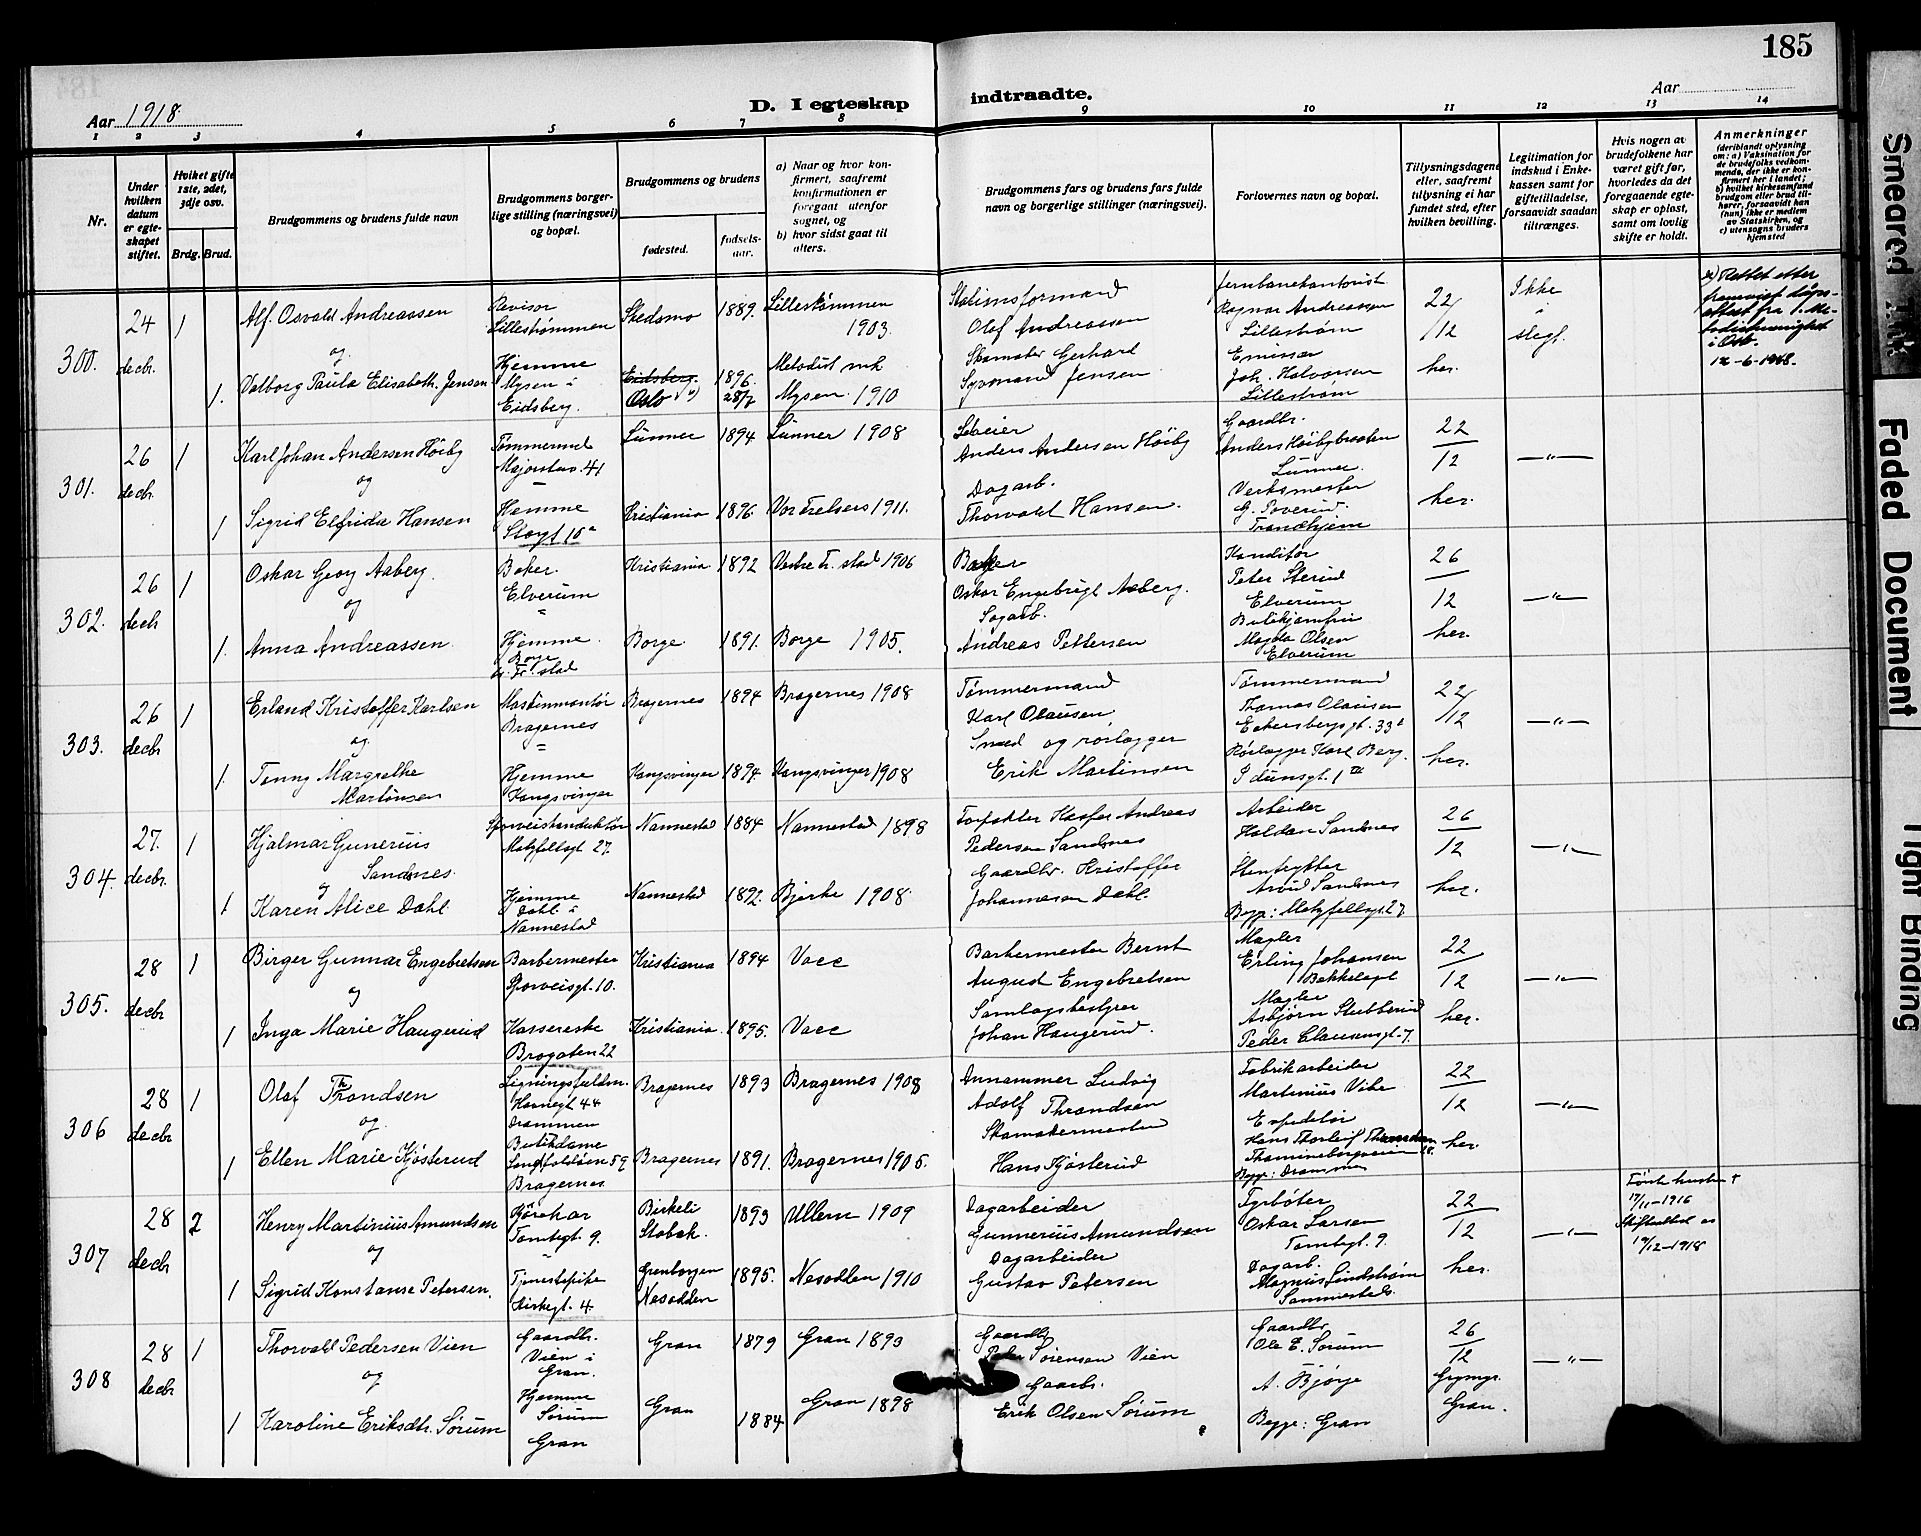 185
Aar 1918.
D. I egteskap indtraadte.
Aar
1 2 3 4 5 6 7 8 9 10 11 12 13 14
Nr.
Under hvilken datum er egteskapet stiftet.
Hvilket gifte 1ste, 2det, 3dje osv.
Brdg. Brud.
Brudgommens og brudens fulde navn
Brudgommens borgerlige stilling (næringsvei) og bopæl.
Brudgommens og brudens
fødested.
fødselsaar.
a) Naar og hvor konfirmert, saafremt konfirmationen er foregaat utenfor sognet, og
b) hvor sidst gaat til alters.
Brudgommens fars og brudens fars fulde navn og borgerlige stillinger (næringsvei).
Forlovernes navn og bopæl.
Tillysningsdagene eller, saafremt tillysning ei har fundet sted, efter hvilken bevilling.
Legitimation for indskud i Enkekassen samt for giftetilladelse, forsaavidt saadan tiltrænges.
Hvis nogen av brudefolkene har været gift før, hvorledes da det foregaaende egteskap er opløst, samt om lovlig skifte er holdt.
Anmerkninger
(deriblandt oplysning om: a) Vaksination for de brudefolks vedkommende, der ikke er konfirmert her i landet; b) hvilket kirkesamfund brudgom eller brud tilhører, forsaavidt han (hun) ikke er medlem av Statskirken, og c) utensogns bruders hjemsted
300. 24 decbr. 1 Alf. Osvald Andreassen Revisor Lillestrømmen Skedsmo 1889. Lillestrømmen 1903. Stationsformand Olaf Andreassen Jernbanekontorist Ragnar Andreassen Lillestrøm 22/12 her. Ikke slegt.
og
1. Valborg Paula Elisabeth Jensen Hjemme Mysen i Eidsberg. Eidsberg. Oslo x) 1896. 28/7 Metodist mk Mysen. 1910 Skomaker Gerhard Jensen Emissær Joh. Halvorsen Lillestrøm
x) Rettet etter fremvist dåpsattest fra 1. Metodistmenighet i Oslo. 12-6-1968.
301. 26 decbr. 1 Karl Johan Andersen Höiby Tømmermd Majorstuv. 41 Lunner 1894 Lunner 1908 Anders Andersen Höiby Gaardbr. Anders Höibybraaten Lunner. 22/12 her. —"—
og
1 Sigrid Elfrida Hansen Hemme Storgt 10a Kristiania 1896. Vor Frelsers 1911. Dagarb. Thorvald Hansen. Verksmester Trondhjem
302. 26 decb 1 Oskar Georg Aaberg. Baker. Elverum Kristiania 1892 Vestre Fr. stad 1906 Baker Oskar Engebrigt Aaberg. Konditor Peter Sterud Elverum 26/12 her. —"—
og
1. Anna Andreassen Hjemme. Borge Fr. stad Borge 1891. Borge 1905. Sagarb. Andreas Pettersen Magda Olsen Elverum
303. 26 decbr. 1 Erland Kristoffer Karlsen Maskinmontör Bragernes Bragernes 1894 Bragernes 1908 Tømmermand Karl Olausen Tømmermand Thomas Olausen Eckersbergsgt. 33b 22/12 her. —"—
og
1 Jenny Margrethe Martinsen Hjemme Kongsvinger Kongsvinger 1894. Kongsvinger 1908 Smed og rørlægger Erik Martinsen Rørlægger Karl Berg. Idunsgt. 1 III
304. 27. decbr. 1 Hjalmar Gunerius Sandsnes. Sporveiskonduktør Motzfeltsgt. 27. Nannestad 1884 Nannestad 1898 Andreas Pedersen Sandsnes Arbeider Haldan Sandsnes 26/12 her. —"—
og
1 Karen Alice Dahl Hjemme Dahl i Nannestad Nannestad 1892. Bjerke 1908. Gaardbr. Kristoffer Johannesen Dahl. Stentrykker Arvid Sandsnes Begge: Motzfeltsgt. 27
305. 28 decbr 1 Birger Gunnar Engebretsen Barbermester Sporveisgt. 10. Kristiania 1894 Vaee Barbermester Bernt August Engebretsen Magler Erling Johansen 22/12 her. —"—
og
1 Inga Marie Haugerud Kassererske Brogaten 22 Kristiania. 1895. Vaee Samlagsbestyrer Johan Haugerud. Magler Asbjørn Stubberud Peder Clausensgt. 7.
306 28 decbr 1 Olaf Throndsen Ligningsfuldm. Havnegt 44 Drammen Bragernes 1893 Bragernes 1908 Ludvig Adolf Throndsen Fabrikarbeider Martinius Vibe 22/12 her. —"—
og
1 Ellen Marie Kjøsterud Butikdame Bragernes Bragernes 1891. Bragernes 1905. Skomakermester Hans Kjøsterud Expeditør Begge: Drammen
307 28 decbr 2 Henry Martinius Amundsen Kjørekar Tomtegt. 9. Birkeli Stabæk. 1893 Ullern 1909 Dagarbeider Gunnerius Amundsen Fyrbøter Oskar Larsen Tomtegt. 9. 22/12 her. —"— Første hustru † 17/11-1916 Skifteattest av 19/12-1918
og
1 Sigrid Konstanse Petersen. Tjenestepike Kirkegt. 4 Nesodden 1895. Nesodden 1910 Dagarbeider Gustav Petersen Dagarb. Magnus Lindstrøm
308 28 decbr 1 Thorvald Pedersen Vien Gaardbr. Vien i Gran. Gran 1879 Gran 1893 Gaardbr Peder Sørensen Vien Gaardbr Ole E. Sørum 26/12 Gran. —"—
og
1 Karoline Eriksdtr. Sørum Hjemme Sørum Gran Gran 1884 Gran 1898 Gaardbr. Erik Olsen Sørum A. Bjørge Begge: Gran
Smeared Ink
Faded Document
Tight Binding